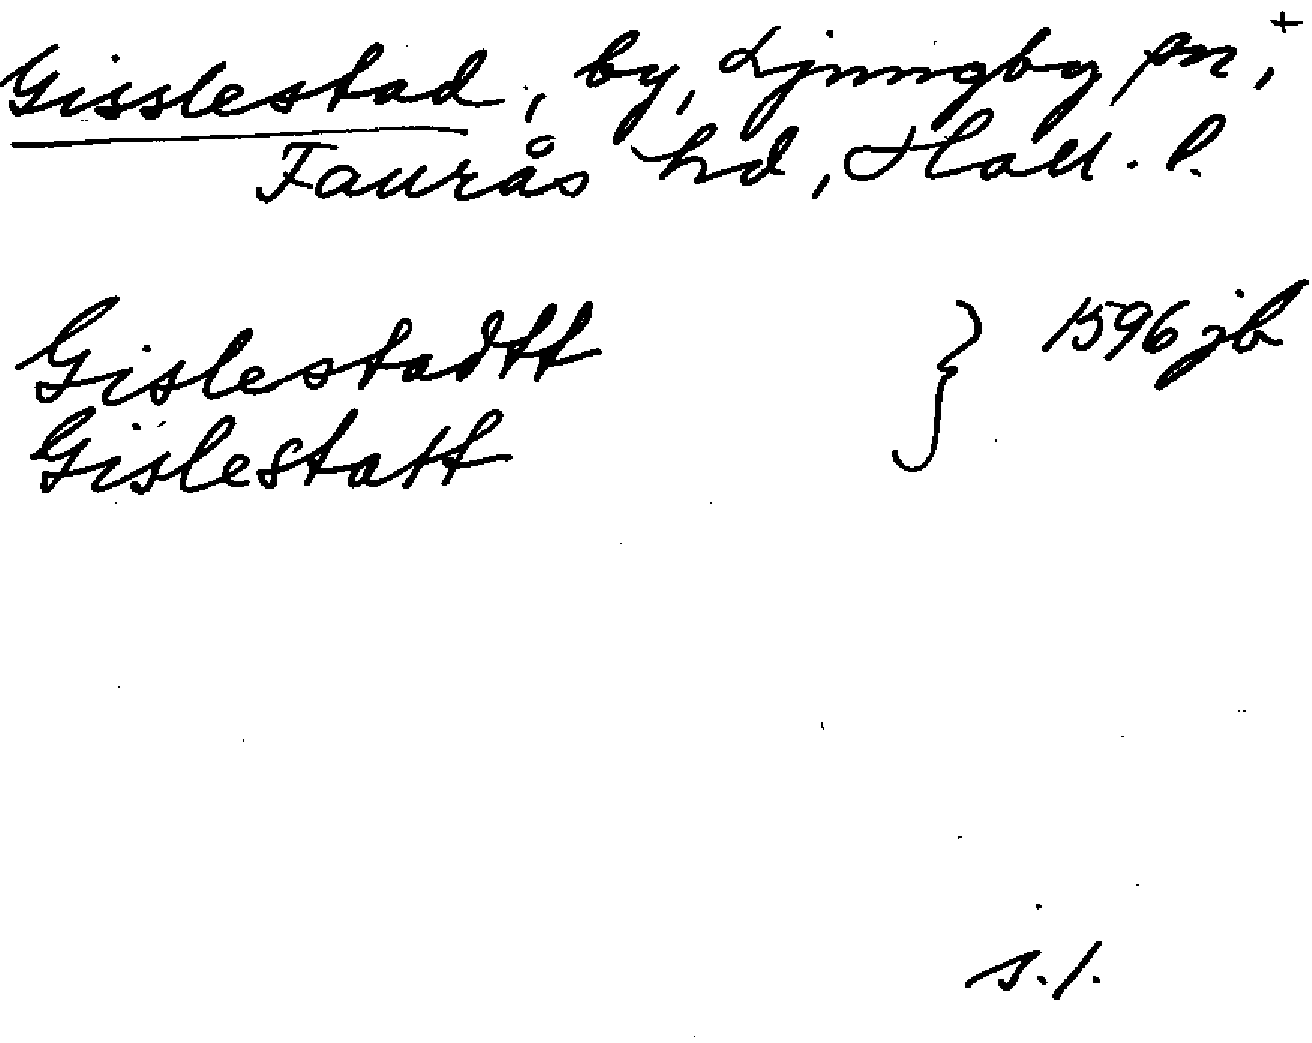 Gisslestad, by, Ljungby sn, +
Faurås hd, Hall. l.
Gislestadtt } 1596 jb
Gislestatt
s. 1.